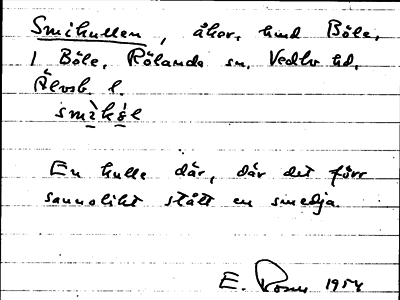 Smikullen, åker, hmd Böle,
1 Böle, Rölanda sn, Vedbo hd,
Älvsb. l.
smìkə̀l
En kulle där, där det förr
sannolikt stått en smedja
E. 1954